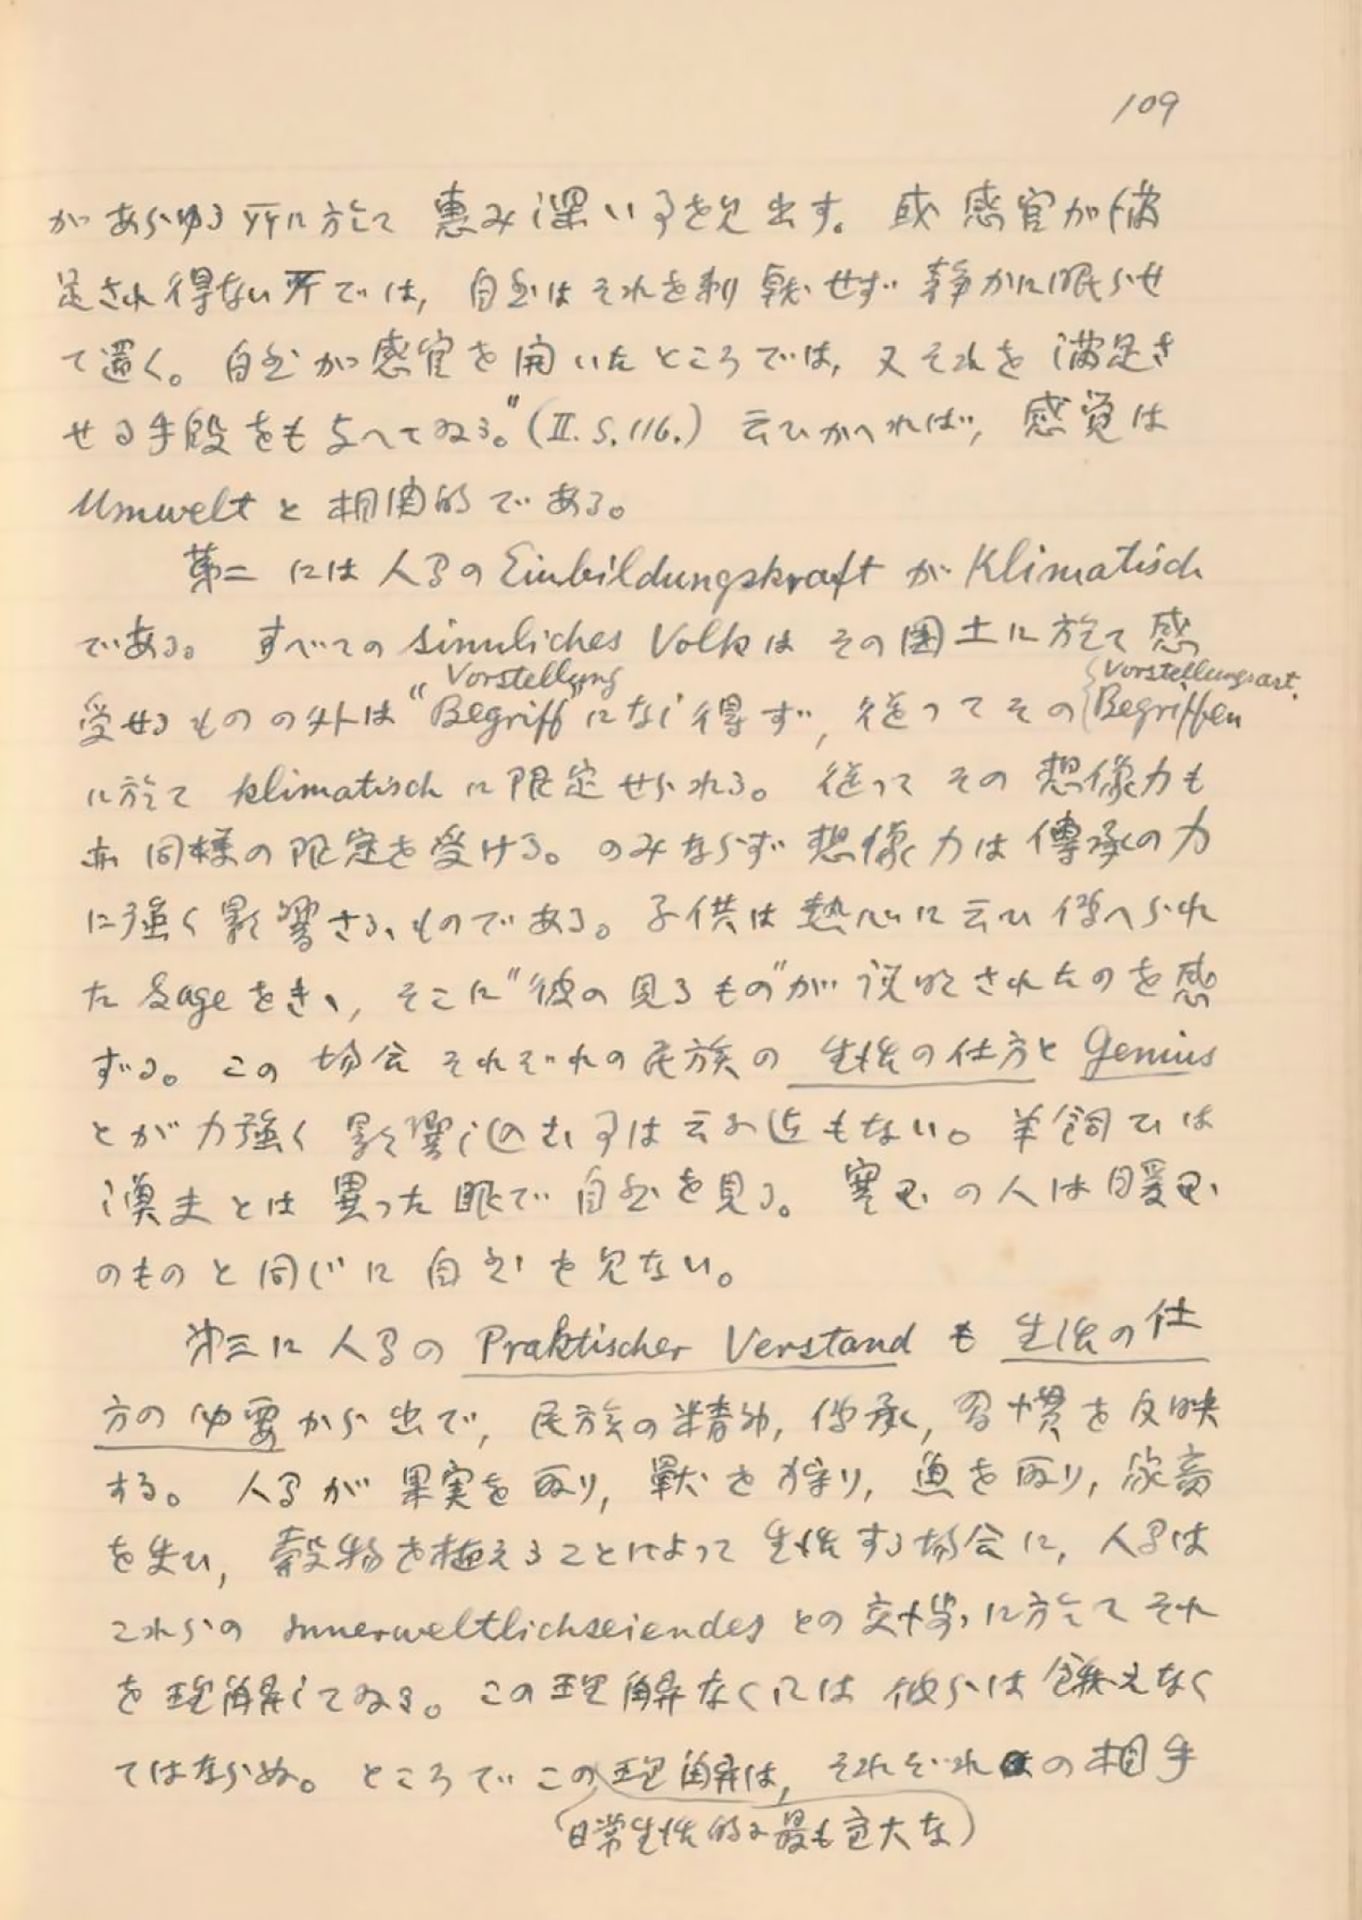 109
があらゆる所に於て恵み深い事を見出す。或感官が満
足され得ない所では, 自然はそれを刺戟せず静かに眠らせ
て置く。自然が感官を開いたところでは, 又それを満足さ
せる手段をも与へてゐる。”(II. S. 116.) 云ひかへれば, 感覚は
Umweltと相関的である。
第二には人間のEinbildungskraftがKlimatisch
である。すべてのsinnliches Volkはその国土に於て感
Vorstellung Vorstellungsart.
受せるものの外は“Begriff”になし得ず, 従つてその{Begriffen
に於てklimatischに限定せられる。従つてその想像力も
亦同様の限定を受ける。のみならず想像力は傳承の力
に強く影響さるゝものである。子供は熱心に云ひ伝へられ
たSageをきゝ, そこに“彼の見るもの”が説明されたのを感
ずる。この場合それぞれの民族の生活の仕方とGenius
とが力強く影響し込む事は云ふ迄もない。羊飼ひは
漁夫とは異つた眼で自然を見る。寒国の人は暖国
のものと同じに自然を見ない。
第三に人間のPraktischer Verstandも生活の仕
方の必要から出で, 民族の精神, 伝承, 習慣を反映
する。人間が果実を取り, 獣を狩り, 魚を取り, 家畜
を養ひ, 穀物を植えることによつて生活する場合に, 人間は
これらのInnerweltlichseiendesとの交渉に於てそれ
を理解してゐる。この理解なくには彼らは餓えなく
てはならぬ。ところでこの理解は, それぞれの相手
(日常生活的な最も広大な)